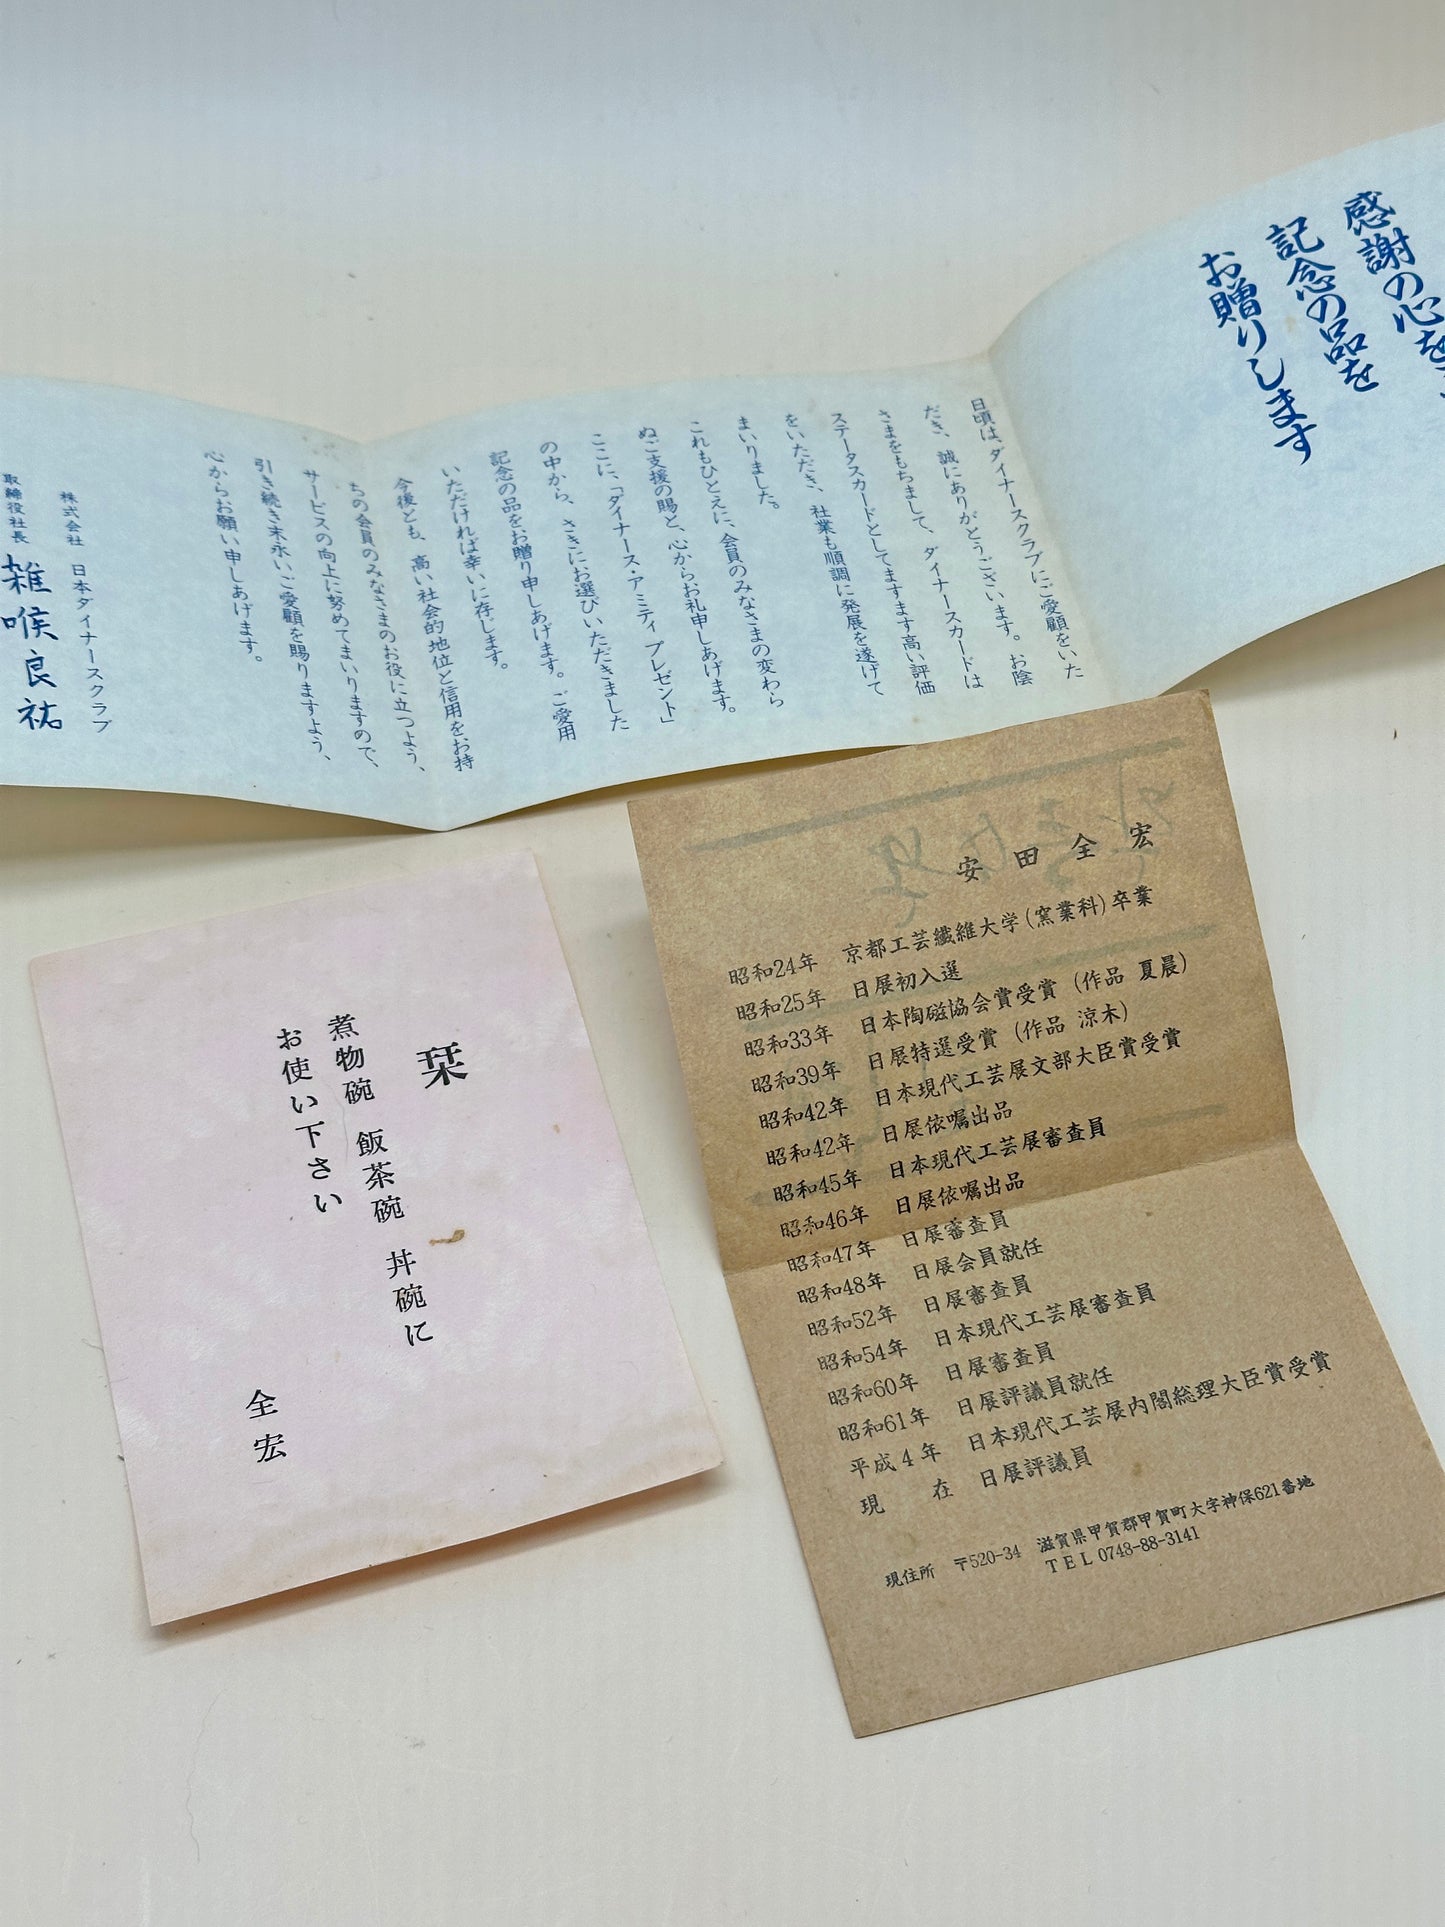 感謝の心を
記念の品を
お贈りします
日頃は、ダイナースクラブにご愛顧をいた
だき、誠にありがとうございます。お陰
さまをもちまして、ダイナースカードは
ステータスカードとしてますます高い評価
をいただき、社業も順調に発展を遂げて
まいりました。
これもひとえに、会員のみなさまの変わら
ぬご支援の賜と、心からお礼申しあげます。
ここに、「ダイナース・アミティ プレゼント」
の中から、さきにお選びいただきました
記念の品をお贈り申しあげます。ご愛用
いただければ幸いに存じます。
今後とも、高い社会的地位と信用をお持
ちの会員のみなさまのお役に立つよう、
サービスの向上に努めてまいりますので、
引き続き末永いご愛顧を賜りますよう、
心からお願い申しあげます。
株式会社 日本ダイナースクラブ
取締役社長 雑喉良祐
栞
煮物碗 飯茶碗 丼碗に
お使い下さい
全宏
安田全宏
昭和24年 京都工芸繊維大学(窯業科)卒業
昭和25年 日展初入選
昭和33年 日本陶磁協会賞受賞 (作品 夏晨)
昭和39年 日展特選受賞 (作品 涼木)
昭和42年 日本現代工芸展文部大臣賞受賞
昭和42年 日展依嘱出品
昭和45年 日本現代工芸展審査員
昭和46年 日展依嘱出品
昭和47年 日展審査員
昭和48年 日展会員就任
昭和52年 日展審査員
昭和54年 日本現代工芸展審査員
昭和60年 日展審査員
昭和61年 日展評議員就任
平成4年 日本現代工芸展内閣総理大臣賞受賞
現在 日展評議員
現住所 〒520-34 滋賀県甲賀郡甲賀町大字神保621番地
TEL 0748-88-3141